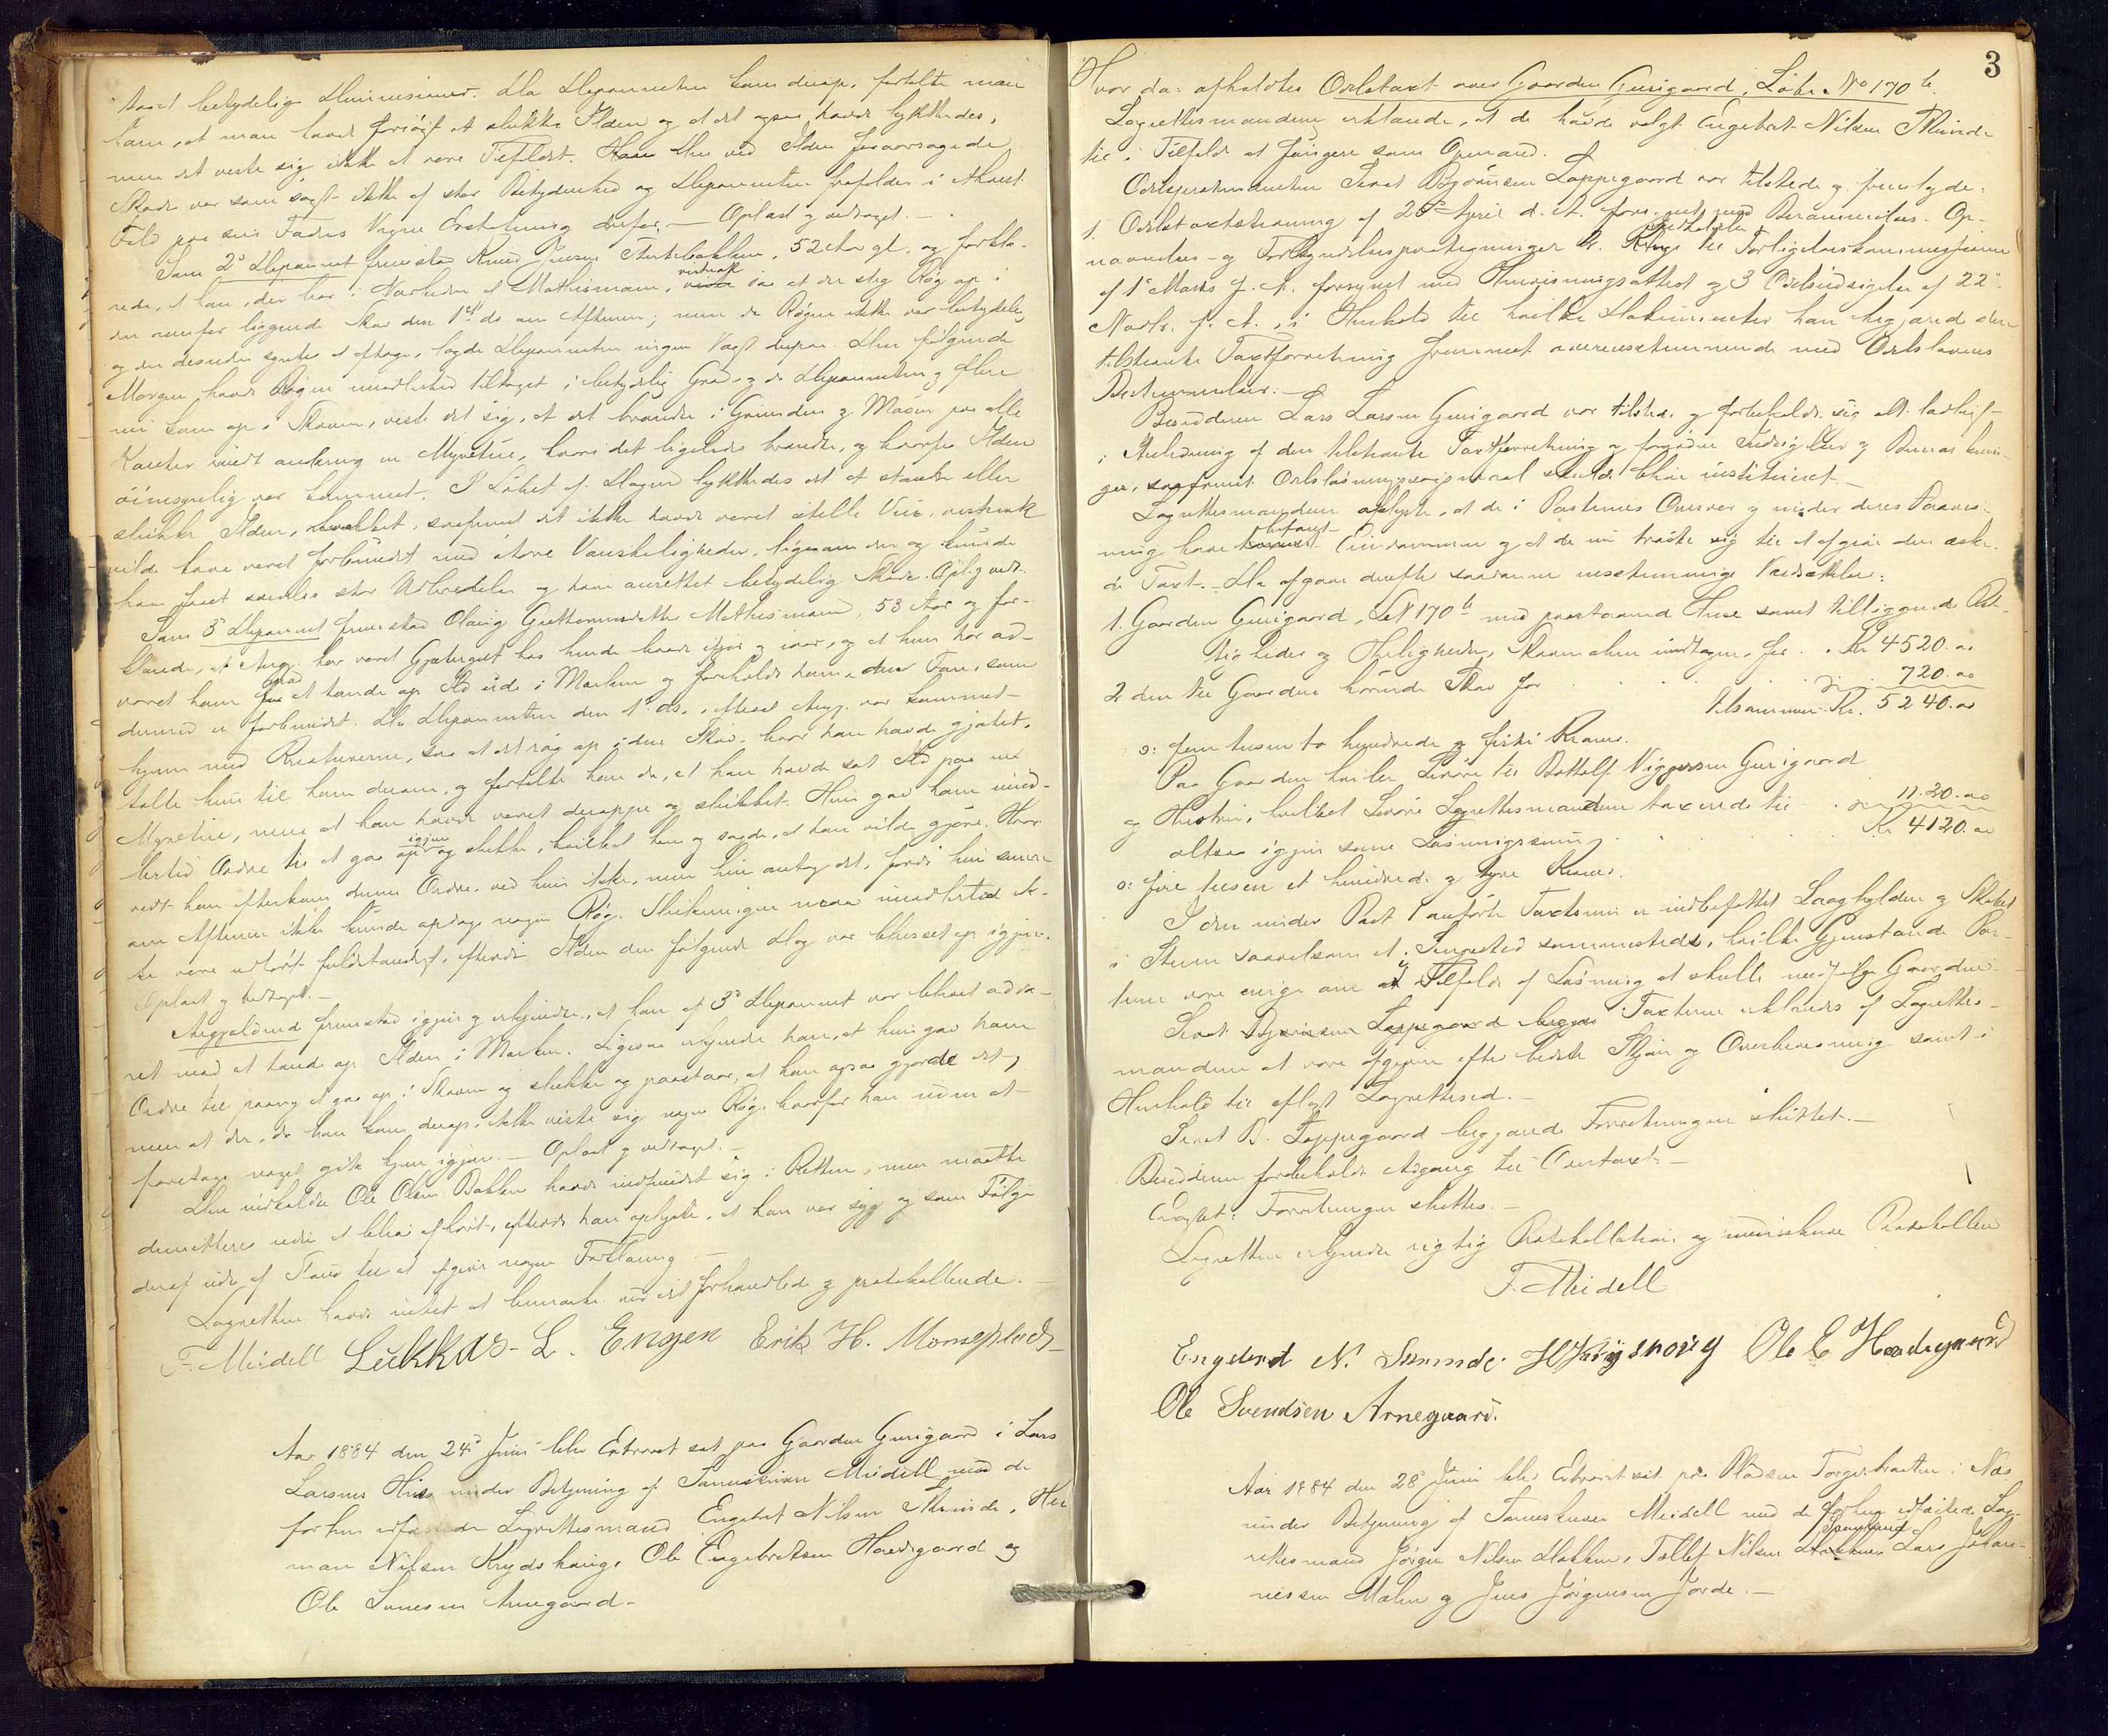 taget betydelige Dimensioner. Da Deponenten kom derop, fortalte man
ham, at man havde forsøgt at slukke Ilden og at det ogsaa havde lykkedes,
men det viste sig ikke at være Tilfældet. Den ved Ilden foraarsagede
Skade var som sagt ikke af stor Betydenhed og Deponenten frafalder i ethvert
Fald paa sin Faders Vegne Erstatning derfor. — Oplæst og vedtaget. —
Som 2d Deponent fremstod Knud Jensen 52 Aar gl. og forkla-
rede, at han, der bor i Nærheden af Mathismoen, vistnok saa at der steg Røg op i
den ovenfor liggende Skov den 1ste ds om Aftenen; men da Røgen ikke var betydelig
og den desuden syntes at aftage, lagde Deponenten ingen Vægt derpaa. Den følgende
Morgen havde Røgen imidlertid tiltaget i betydelig Grad og da Deponenten og flere
nu kom op i Skoven, viste det sig, at det brændte i Grunden og Mosen paa alle
Kanter rundt omkring en Myretue, hvori det ligeledes brændte, og hvorfra Ilden
øiensynlig var kommet. I Løbet af Dagen lykkedes det at standse eller
slukke Ilden, hvilket, saafremt det ikke havde været stille Veir, vistnok
vilde have været forbundet med større Vanskeligheder, ligesom den og kunde
have faaet særdeles stor Udbredelse og have anrettet betydelig Skade. Opl. g vedt.
Som 3d Deponent fremstod Olaug Guttormsdatter Mathismoen, 53 Aar og for-
klarede, at Angj. har været Gjætergut hos hende baade ifjor og iaar, og at hun har ad-
varet ham mod at tænde op Ild ude i Marken og foreholdt ham den Fare, som
dermed er forbundet. Da Deponenten den 1ste ds., efterat Angj. var kommet
hjem med Kreaturerne, saa at det røg op i den Skov, hvor han havde gjætet,
talte hun til ham derom, og fortalte han da, at han havde sat Ild paa en
Myretue, men at han havde været deroppe og slukket. Hun gav ham imid-
lertid Ordre til at gaa igjen og slukke, hvilket han og sagde, at han vilde gjøre. Hvor-
vidt han efterkom denne Ordre, ved hun ikke, men hun antog det, fordi hun senere
om Aftenen ikke kunde opdage nogen Røg. Slukningen maa imidlertid ik-
ke være udført fuldstændigt, efterdi Ilden den følgende Dag var blusset op igjen.
Oplæst og vedtaget. —
Angjældende fremstod igjen og erkjendte, at han af 3d Deponent var blevet adva-
ret mod at tænde op Ilden i Marken. Ligesaa erkjendte han, at hun gav ham
Ordre til paany at gaa op i Skoven og slukke og paastaar, at han ogsaa gjorde det,
men at der, da han kom derop, ikke viste sig nogen Røg, hvorfor han uden at
foretage noget gik hjem igjen. — Oplæst og vedtaget. —
Den indkaldte Ole Olsen Bakken havde indfundet sig i Retten, men maatte
demitteres uden at blive afhørt, efterdi han oplyste, at han var syg og som Følge
deraf ude af Stand til at afgive nogen Forklaring. —
Lagretten havde intet at bemærke ved det forhandlede og protokollerede. —
F. Meidell Lukkas L. Engen Erik H. Monseplads
Aar 1884 den 24d Juni blev Extraret sat paa Gaarden Gurigaard i Lars
Larsens Hus under Betjening af Sorenskriver Meidell med de
forhen edfæstede Lagrettesmænd Engebret Nilsen Skrinde, Her-
man Nilsen Krydshaug, Ole Engebretsen Hovdegaard og
Ole Svensen Arnegaard. —
3
Hvor da: afholdtes Odelstaxt over Gaarden Gurigaard, Løbe No 170 b.
Lagrettesmændene erklærede, at de havde valgt Engebret Nilsen Skrinde
til i Tilfælde at fungere som Opmand.
Odelsprætendenten Sevat Bjørnsen Loppegaard var tilstede og fremlagde:
1. Odelstaxtstævning af 26d April d. A. forsynet med Berammelses- Op-
nævnelses- og Forkyndelsespaategninger 2. Indkaldelse til Forligelseskommissionen
af 1ste Marts f. A. forsynet med Henvisningsattest og 3 Odelsudsigelse af 22d
Novbr. f. A., i Henhold til hvilke Dokumenter han begjærede den
tilstævnte Taxtforretning fremmet overensstemmende med Odelslovens
Bestemmelser. —
Besidderen Lars Larsen Gurigaard var tilstede og forbeholdt sig alt lovligt
i Anledning af den tilstævnte Taxtforretning og forøvrigt Indsigelser og Bemærknin-
ger, saafremt Odelsløsningssøgsmaal skulde blive institueret. —
Lagrettesmændene oplyste, at de i Parternes Overvær og under deres Paavis-
ning have befaret Eiendommen og at de nu trøste sig til at afgive den æske-
de Taxt. — De afgaar derefter saadanne enstemmige Værdsættelser:
1. Gaarden Gurigaard, L N 170 b med paastaaende Huse samt tilliggende Ret-
tigheder og Herligheder, Skoven alene undtagen, for . . Kr 4520.00
2. den til Gaarden hørende Skov for . . . . . . 720.00
tilsammen Kr. 5240.00
ɔ: fem tusen to hundrede og firti Kroner.
Paa Gaarden hviler Livøre til Bottolf Viggersen Gurigaard
og Hustru, hvilket Livøre Lagrettesmændene taxerede til . . 1120.00
altsaa igjen som Løsningssum . . . . . Kr 4120.00
ɔ: fire tusen et hundrede og tyve Kroner.
I den under Post 1 anførte Taxtsum er indbefattet Laaghylden og Skabet
i Stuen saavelsom et Sengested sammesteds, hvilke Gjenstande Par-
terne vare enige om i Tilfælde af Løsning at skulle medfølge Gaarden. —
Taxterne erklæredes af Lagrettes-
mændene at være afgivne efter bedste Skjøn og Overbevisning samt i
Henhold til aflagt Lagrettesed. —
Sevat B. Loppegaard begjærede Forretningen sluttet. —
Besidderen forbeholdt Adgang til Overtaxt. —
Eragtet: Forretningen sluttes. —
Lagretten erkjendte rigtig Protokollation og underskrev Protokollen
F. Meidell
Engebred N. Skrinde. H Krydshoug Ole E Hovdegaard
Ole Svendsen Arnegaard.
Aar 1884 den 28d Juni blev Extraret sat paa Pladsen Torgersbraaten i Næs
under Betjening af Sorenskriver Meidell med de forhen edfæstede Lag-
rettesmænd Jørgen Nilsen Dokken, Tollef Nilsen Lars Johan-
nessen Mohn og Jens Jørgensen Jorde. —